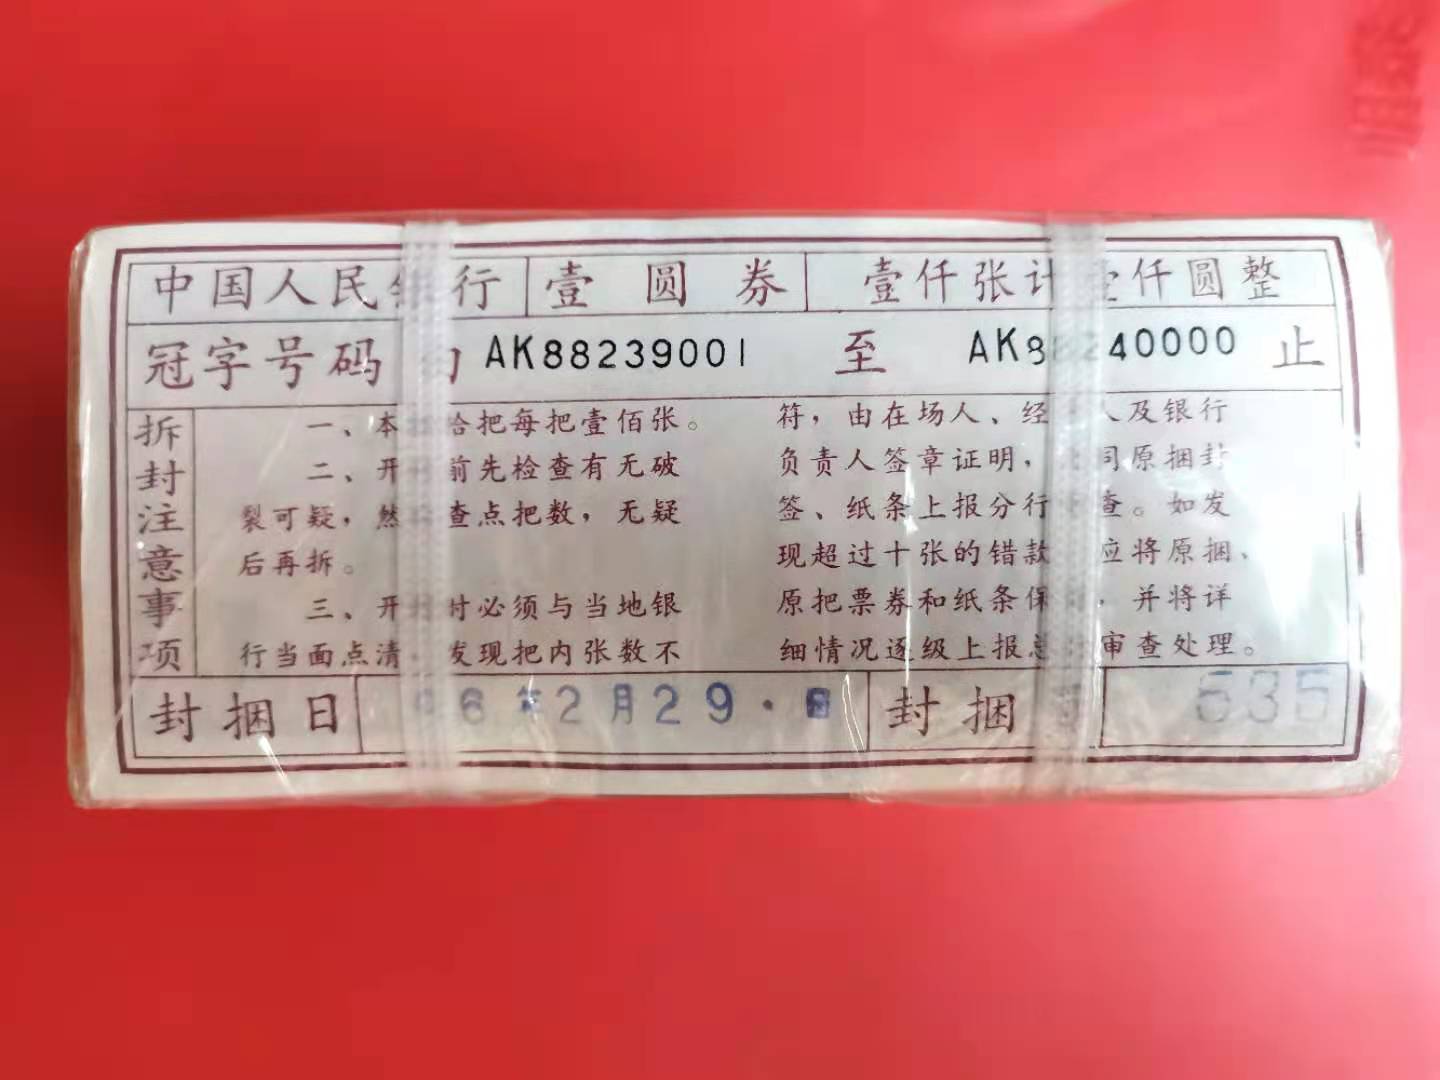 中国人民银行 壹圆券 壹仟张计壹仟圆整
冠字号码 AK88239001 至 AK88240000 止
拆封注意事项
一、本 哈把每把壹佰张。
二、开 前先检查有无破
裂可疑，然 查点把数，无疑
后再拆。
三、开 时必须与当地银
行当面点清 发现把内张数不
符，由在场人、经 人及银行
负责人签章证明， 同原捆封
签、纸条上报分行 查。如发
现超过十张的错款 应将原捆、
原把票券和纸条保 ，并将详
细情况逐级上报总 审查处理。
封捆日 96年2月29·日 封捆 535